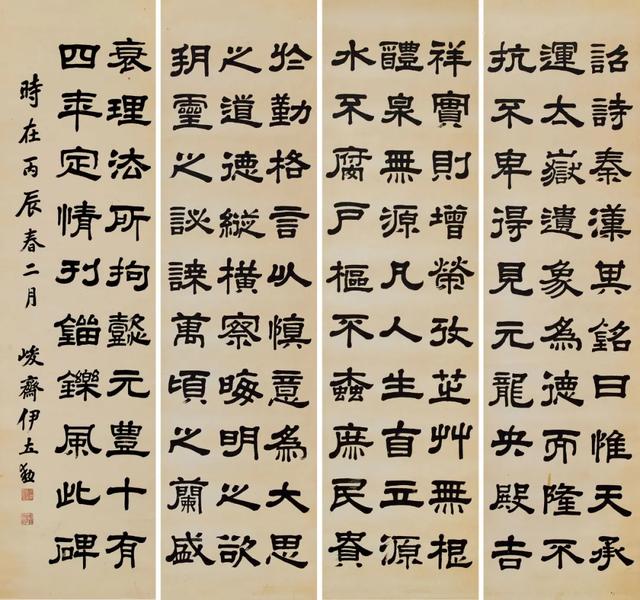 詔詩秦漢其銘曰惟天承
運太嶽遺象為德而隆不
抗不卑得見元龍央殿吉
祥實則增榮攷芝艸無根
醴泉無源凡人生自立源
水不腐戶樞不蠹庶民賚
於勤格言以慎意為大思
之道德縱橫察晦明之欲
玥靈之詠諫萬頃之蘭盛
衰理法所拘懿元豊十有
四年定情刊錙鑠風此碑
時在丙辰春二月 峻齋伊立勳